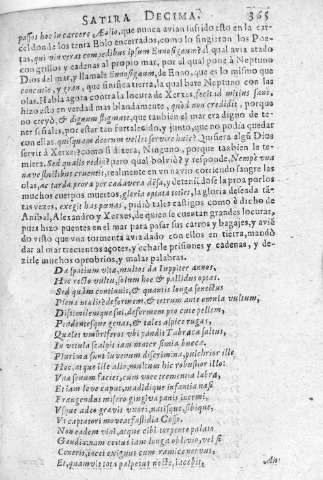 SATIRA DECIMA. 365
passos hoc in carcere Æolio, que nunca avian sufrido esto en la car-
cel donde los tenta Eolo encerrados, como lo fingieron los Poe-
tas, qui vinxerat compedibus ipsum Ennosigaum? al qual avia atado
con grillos y cadenas al propio mar, por el qual pone à Neptuno
Dios del mar, y llamale Ennosigaum, de Enno, que es lo mismo que
concutio, y gran, que sinifica tierra, la qual bate Neptuno con las
olas. Habla agora contra la locura de Xerxes, fecit id mitius sanè,
hizo esto en verdad mas blandamente, quòd non credidit, porque
no creyò, & dignum stigmate, que tambien el mar era digno de te-
ner señales, por estar tan fortalecido, y junto, que no podia quedar
con ellas. quisquam deorum vellet servire huic? Quisiera algũ Dios
servir à Xerxes: como si dixera, Ninguno, porque tambien le te-
miera. Sed qualis rediit? pero qual bolviò? y responde, Nempè una
nave fluctibus cruentis, realmente en un navio corriendo sangre las
olas, ac tarda prora per cadavera dẽsa, y detenidose la proa por los
muchos cuerpos muertos, gloria optata toties, la gloria deseada tã-
tas vezes, exegit has pœnas, pidiò tales castigos como è dicho de
Anibal, Alexandro y Xerxes, de quien se cuentan grandes locuras,
pues hizo puentes en el mar para pasar sus carros y bagajes, y aviẽ
do visto que una tormenta avia dado con ellos en tierra, mandò
dar al mar trecientos açotes, y echarle prisiones y cadenas, y de-
zirle muchos oprobrios, y malas palabras.
Da spatium vita, multos da Iuppiter annos,
Hoc recto vultu, solum hoc & pallidus optas.
Sed quàm continuis, & quantis longa senectus
Plena malis? deformem, & tetrum ante omnia vultum,
Dissimilemque sui, deformem pro cute pellem,
Pendentesque genas, & tales aspice rugas,
Quales umbriferos ubi pandit Tabraca saltus,
In vetula scalpit iam mater simia bucca.
Plurima sunt iuvenum discrimina, pulchrior ille
Hoc, atque ille alio, multum hic robustior illo:
Una senum facies, cum voce trementia labra,
Et iam leve caput, madidique infantia nasi.
Frangendus misero gingiva panis inermi.
Usque adeo gravis uxori, natisque, sibique,
Ut captatori moveat fastidia Cosso.
Non eadem vini, atque cibi torpente palato
Gaudia: nam coitus iam longa oblivio, vel si
Coneris, iacet exiguus cum ramice nervus,
Et, quamvis tota palpetur nocte, iacebit,